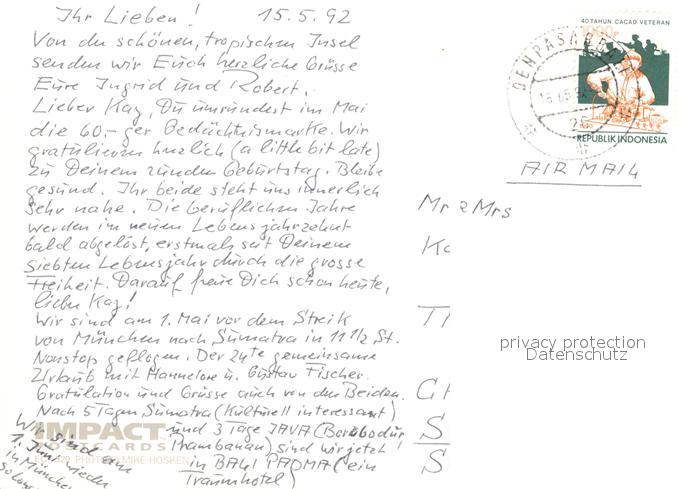 Ihr Lieben! 15.5.92
Von der schönen, tropischen Insel
senden wir Euch herzliche Grüsse
Eure Ingrid und Robert.
Lieber Kaz, Du umrundest im Mai
die 60-ger Gedächtnismarke. Wir
gratulieren herzlich (a little bit late)
zu Deinem runden Geburtstag. Bleibe
gesund. Ihr beide steht uns innerlich
sehr nahe. Die beruflichen Jahre
werden im neuen Lebensjahrzehnt
bald abgelöst, erstmals seit Deinem
siebten Lebensjahr durch die grosse
Freiheit. Darauf freue Dich schon heute,
lieber Kaz!
Wir sind am 1. Mai vor dem Streik
von München nach Sumatra in 11 1/2 St.
Nonstop geflogen. Der 24te gemeinsame
Urlaub mit Hannelore u. Gustav Fischer.
Gratulation und Grüsse auch von den Beiden.
Nach 5 Tagen Sumatra (Kulturell interessant)
und 3 Tage JAVA (Borobodur
Prambanan) sind wir jetzt
in BALI PADMA (ein
Traumhotel)
Wir sind am
1. Juni wieder
in München
IMPACT
POSTCARDS
PHOTO MIKE HOSKEN
40 TAHUN CACAD VETERAN
1000r
REPUBLIK INDONESIA
DENPASAR
AIR MAIL
Mr & Mrs
privacy protection
Datenschutz